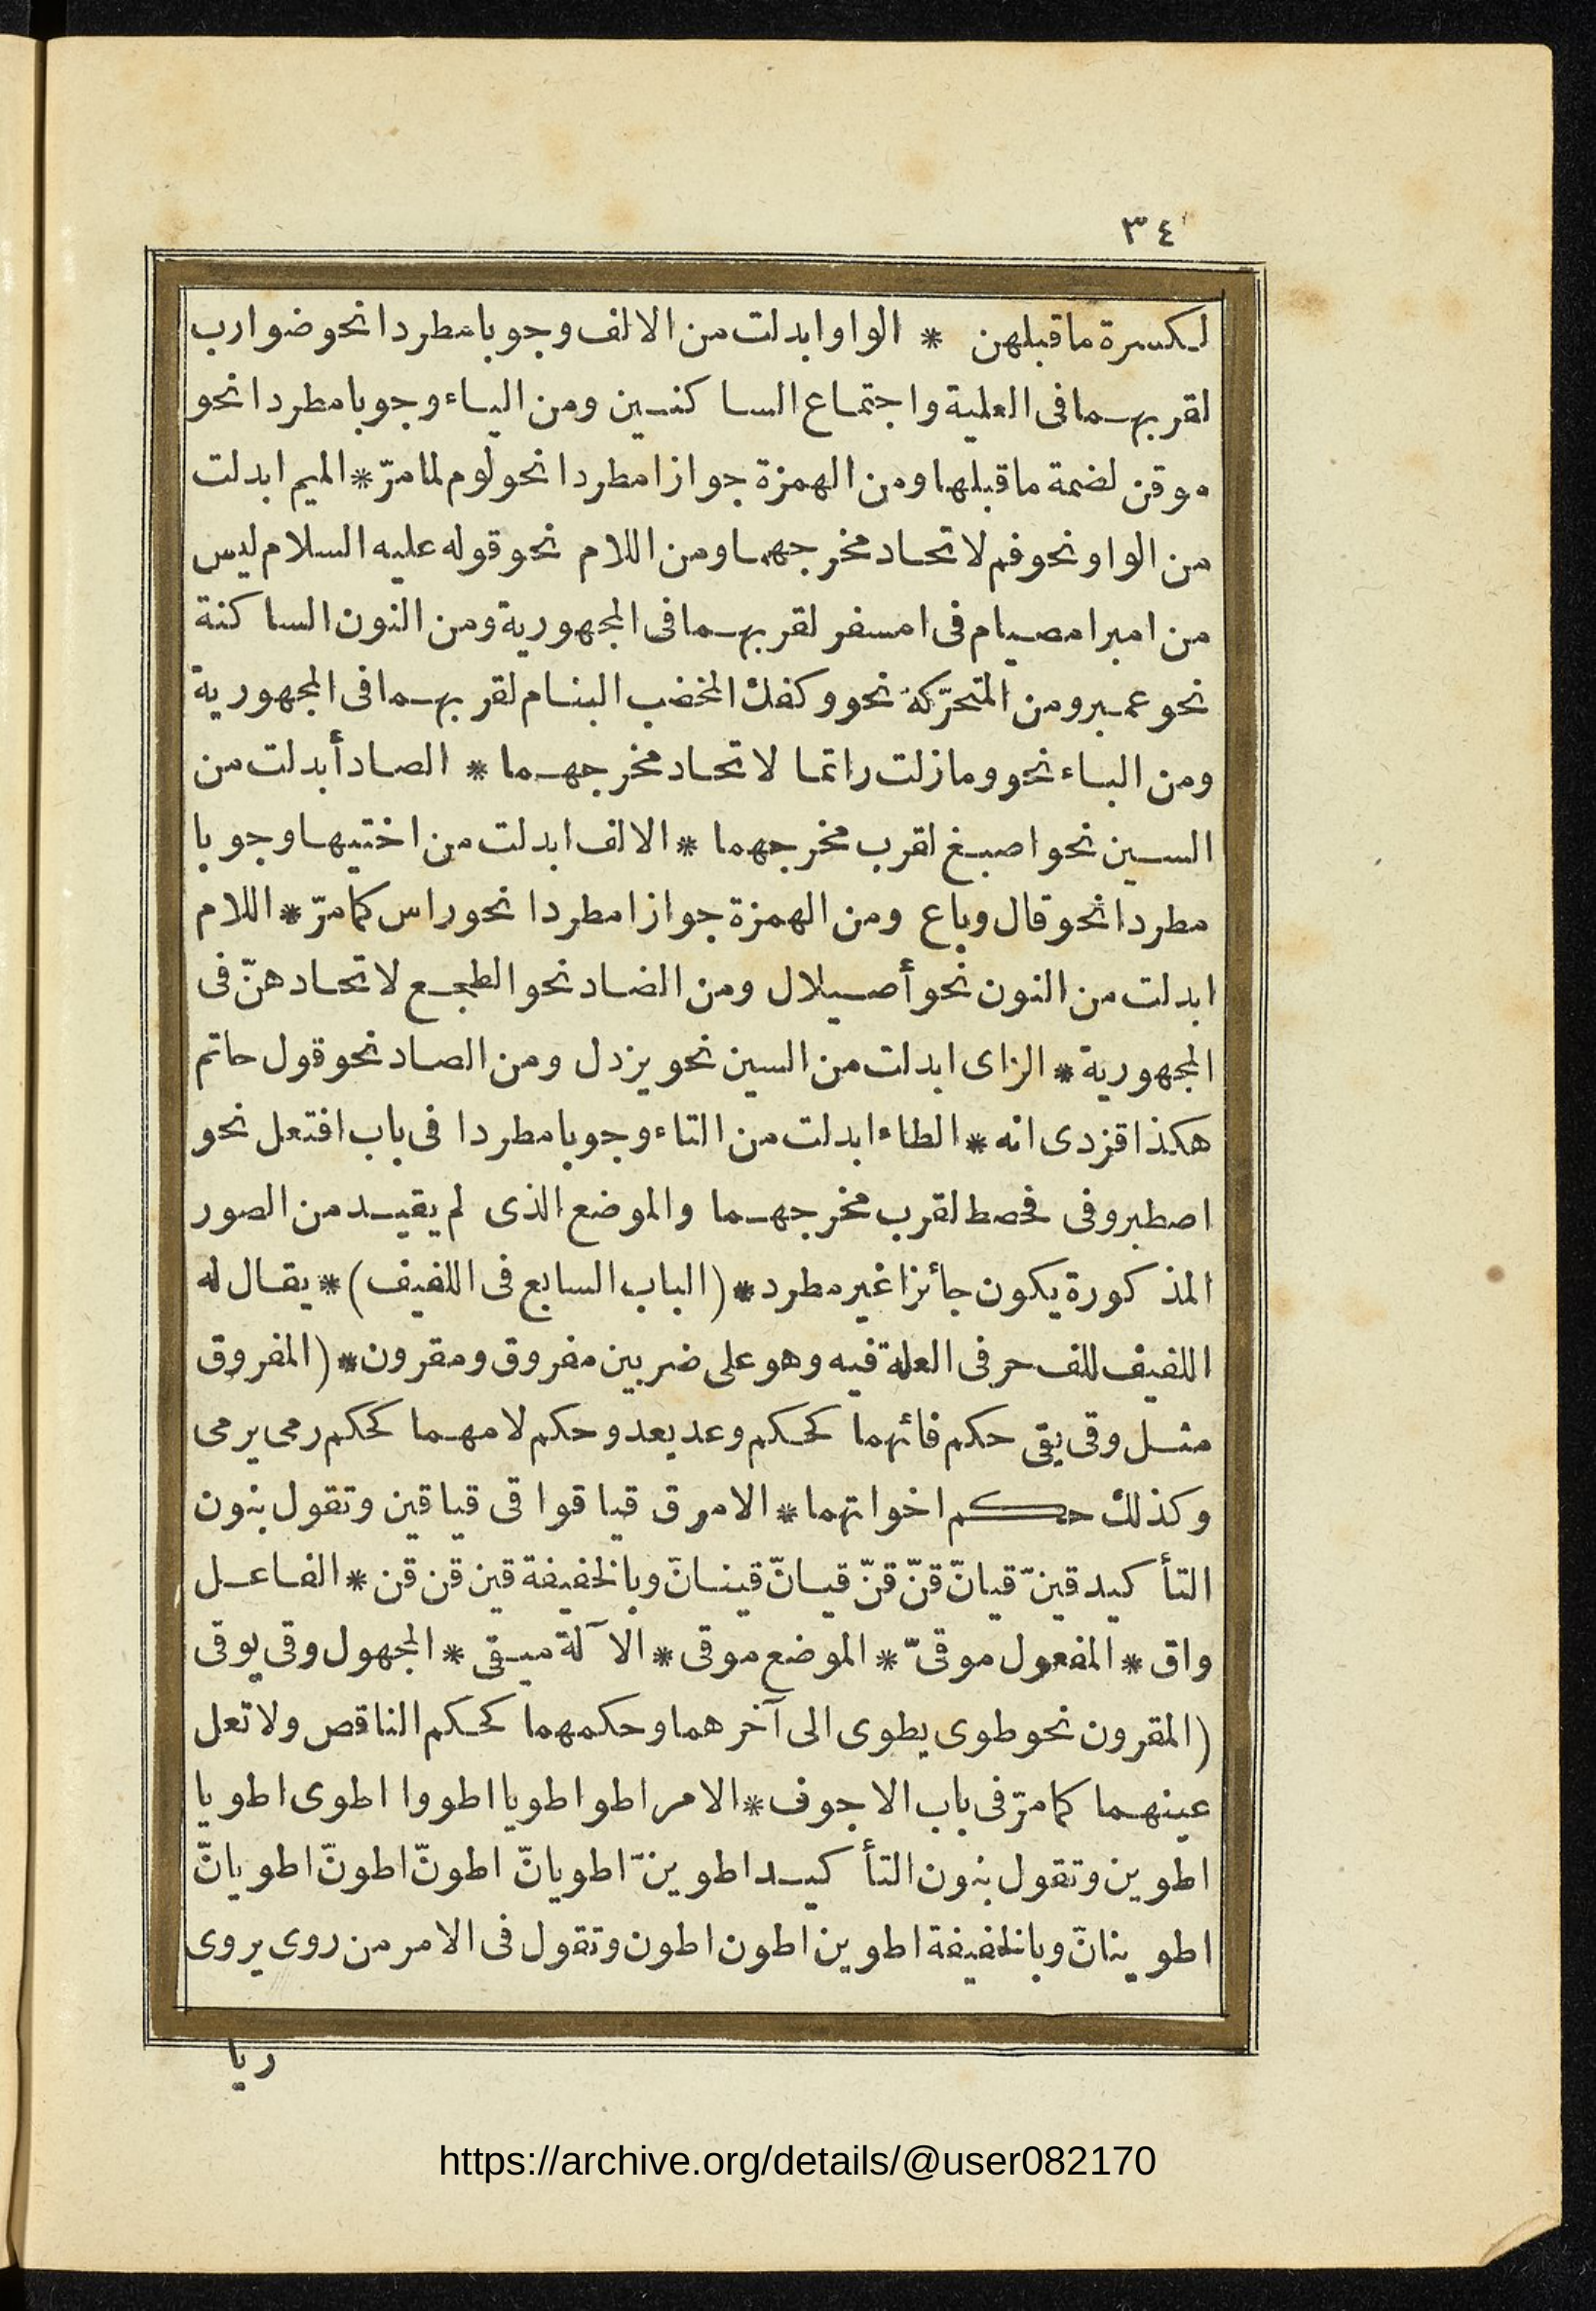 ٣٤
لكسرة ماقبلهن * الواو ابدلت من الالف وجوبا مطردا نحو ضوارب
لقربهما فى العلية واجتماع الساكنين ومن الياء وجوبا مطردا نحو
موقن لضمة ماقبلها ومن الهمزة جوازا مطردا نحو لوم لما مرّ * الميم ابدلت
من الواو نحو فم لاتحاد مخرجهما ومن اللام نحو قوله عليه السلام ليس
من امبر امصيام فى امسفر لقربهما فى المجهورية ومن النون الساكنة
نحو عمبر ومن المتحرّكة نحو وكفك المخضب البنام لقربهما فى المجهورية
ومن الباء نحو ومازلت راتما لاتحاد مخرجهما * الصاد أبدلت من
السين نحو اصبغ لقرب مخرجهما * الالف ابدلت من اختيها وجوبا
مطردا نحو قال وباع ومن الهمزة جوازا مطردا نحو راس كما مرّ * اللام
ابدلت من النون نحو أصيلال ومن الضاد نحو الطجع لاتحادهنّ فى
المجهورية * الزاى ابدلت من السين نحو يزدل ومن الصاد نحو قول حاتم
هكذا قزدى انه * الطاء ابدلت من التاء وجوبا مطردا فى باب افتعل نحو
اصطبر وفى فحصط لقرب مخرجهما والموضع الذى لم يقيد من الصور
المذكورة يكون جائزا غير مطرد * (الباب السابع فى اللفيف) * يقال له
اللفيف للف حرفى العلة فيه وهو على ضربين مفروق ومقرون * (المفروق
مثل وقى يقى حكم فائهما كحكم وعد يعد وحكم لامهما كحكم رمى يرمى
وكذلك حكم اخواتهما * الامر ق قيا قوا قى قيا قين وتقول بنون
التأكيد قينّ قيانّ قنّ قنّ قيانّ قينانّ وبالخفيفة قين قن قن * الفاعل
واق * المفعول موقىّ * الموضع موقى * الآلة ميقى * المجهول وقى يوقى
(المقرون نحو طوى يطوى الى آخرهما وحكمهما كحكم الناقص ولا تعل
عينهما كما مرّ فى باب الاجوف * الامر اطو اطويا اطووا اطوى اطويا
اطوين وتقول بنون التأكيد اطوينّ اطويانّ اطونّ اطونّ اطويانّ
اطوينانّ وبالخفيفة اطوين اطون اطون وتقول فى الامر من روى يروى
ريا
https://archive.org/details/@user082170